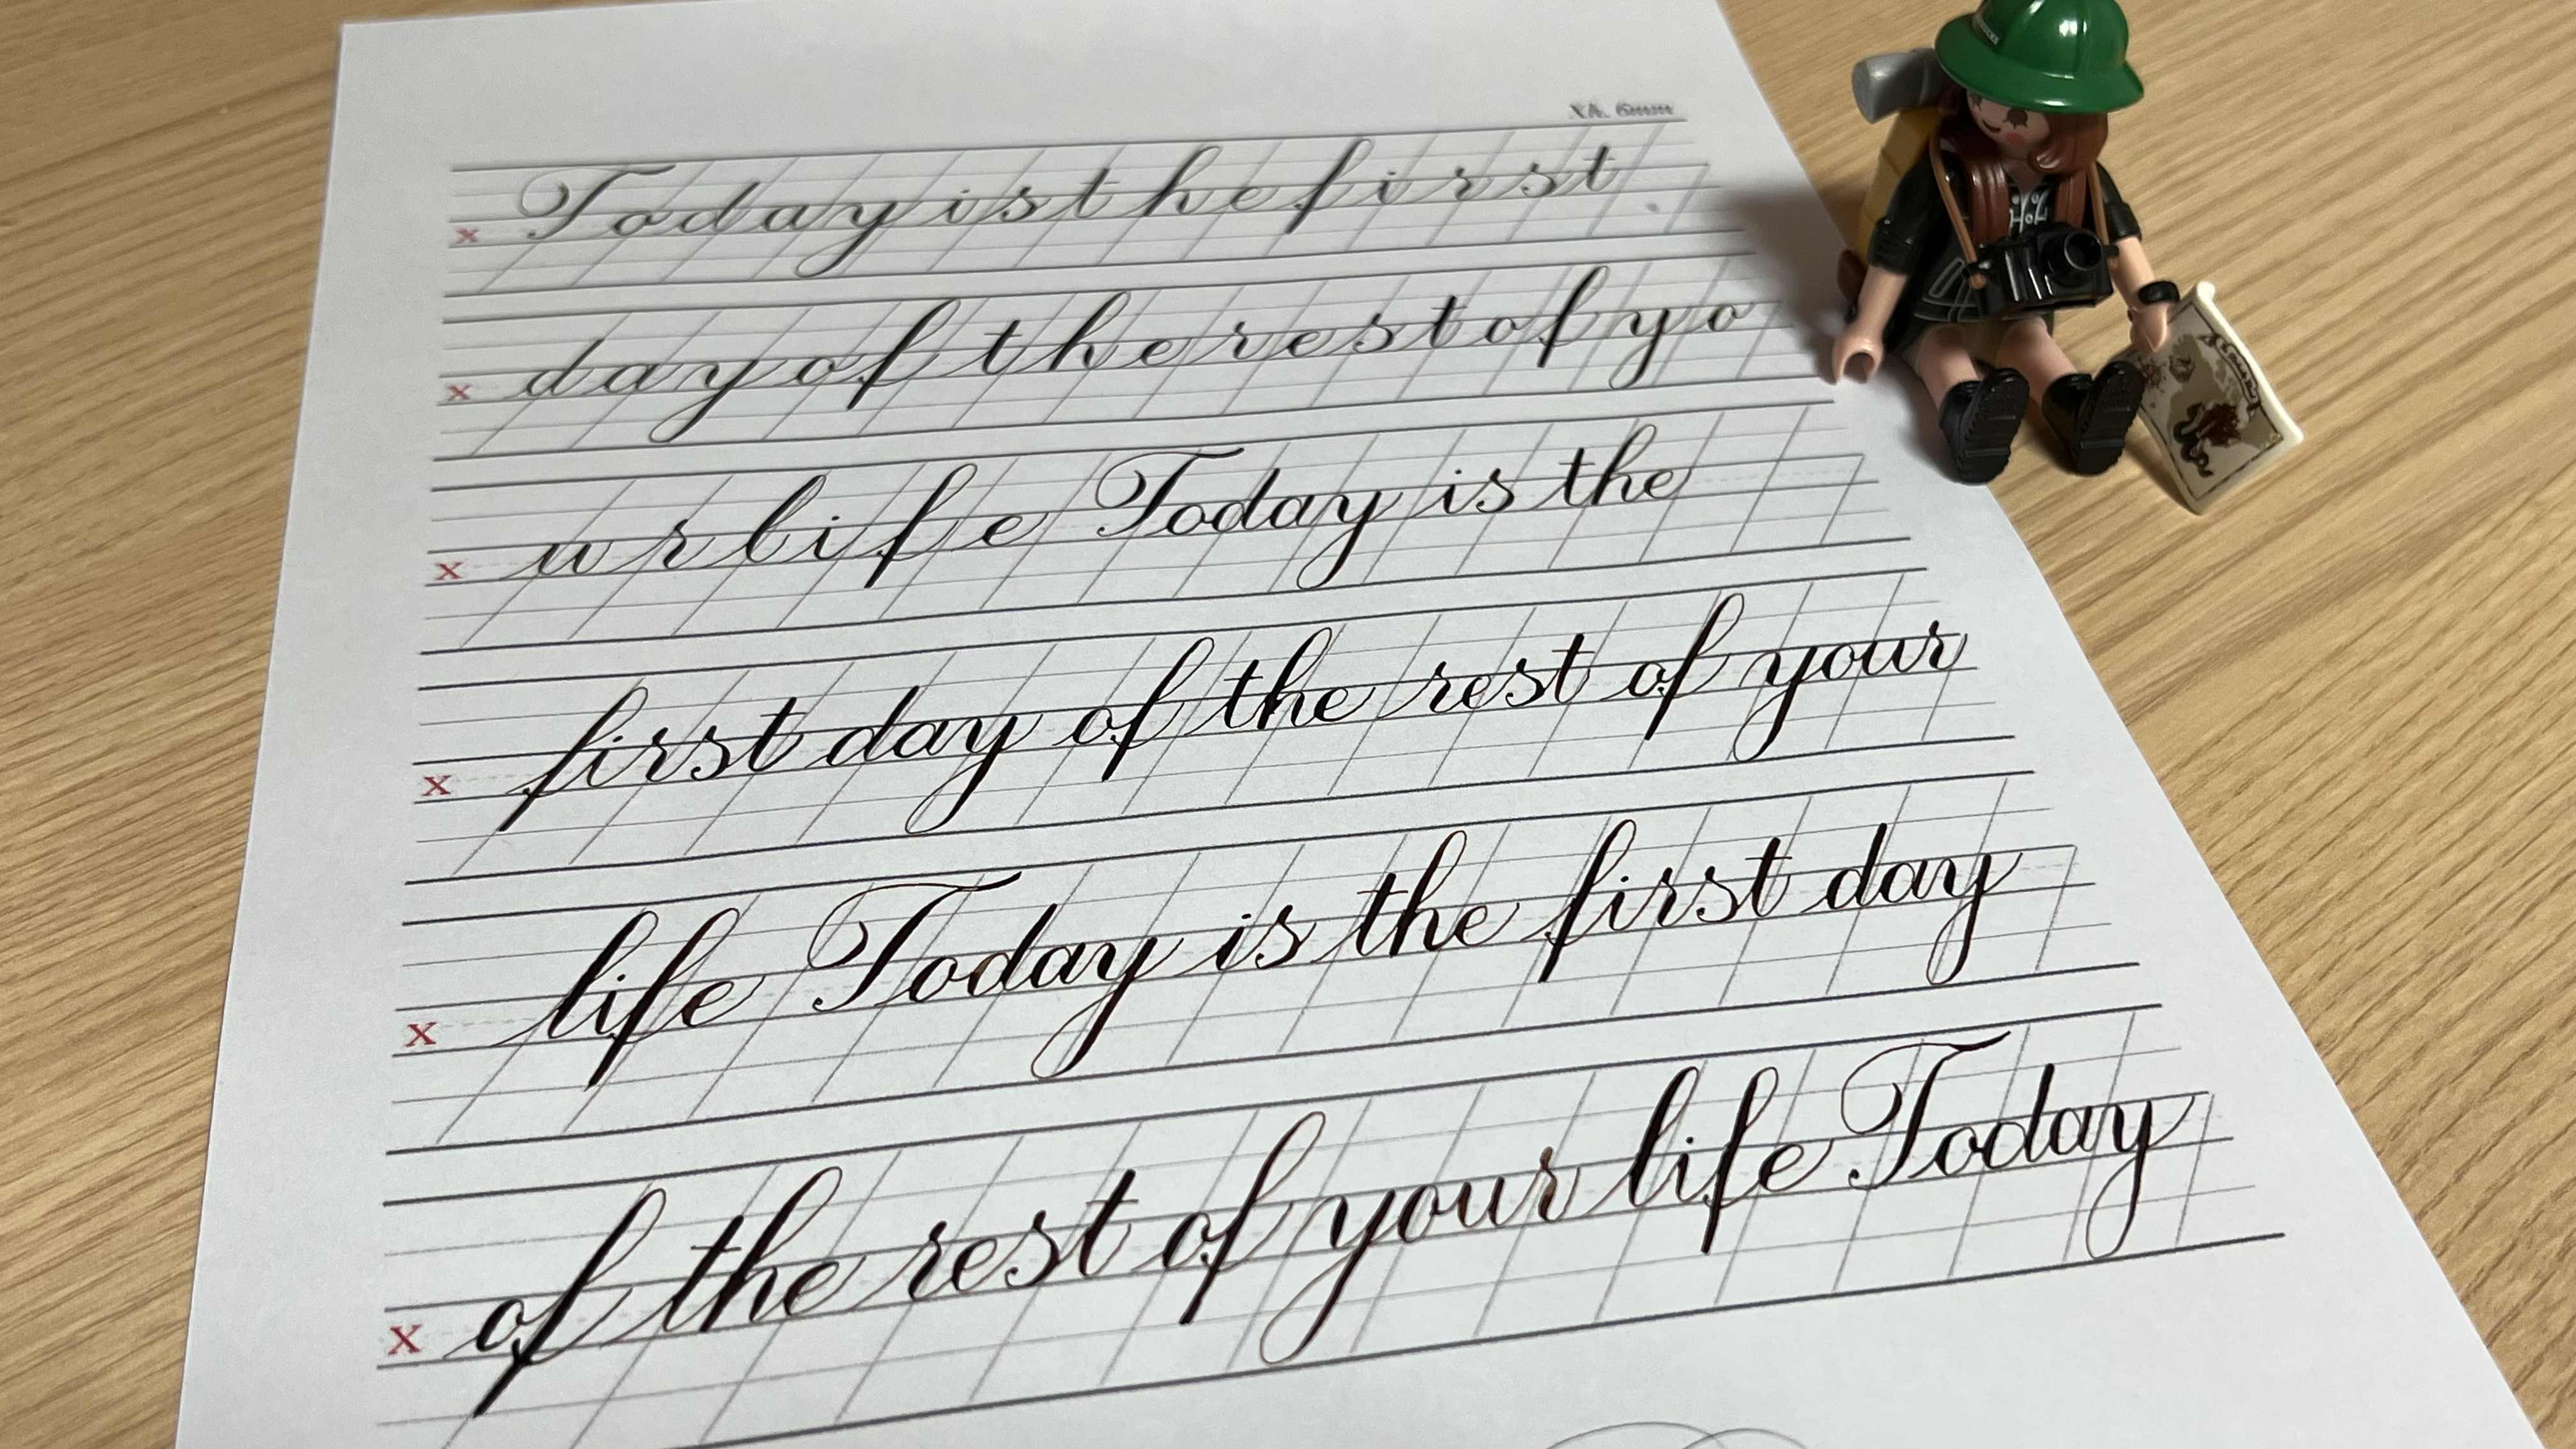 XA. 6mm
x Today is the first
x day of the rest of yo
x ur life Today is the
x first day of the rest of your
x life Today is the first day
x of the rest of your life Today